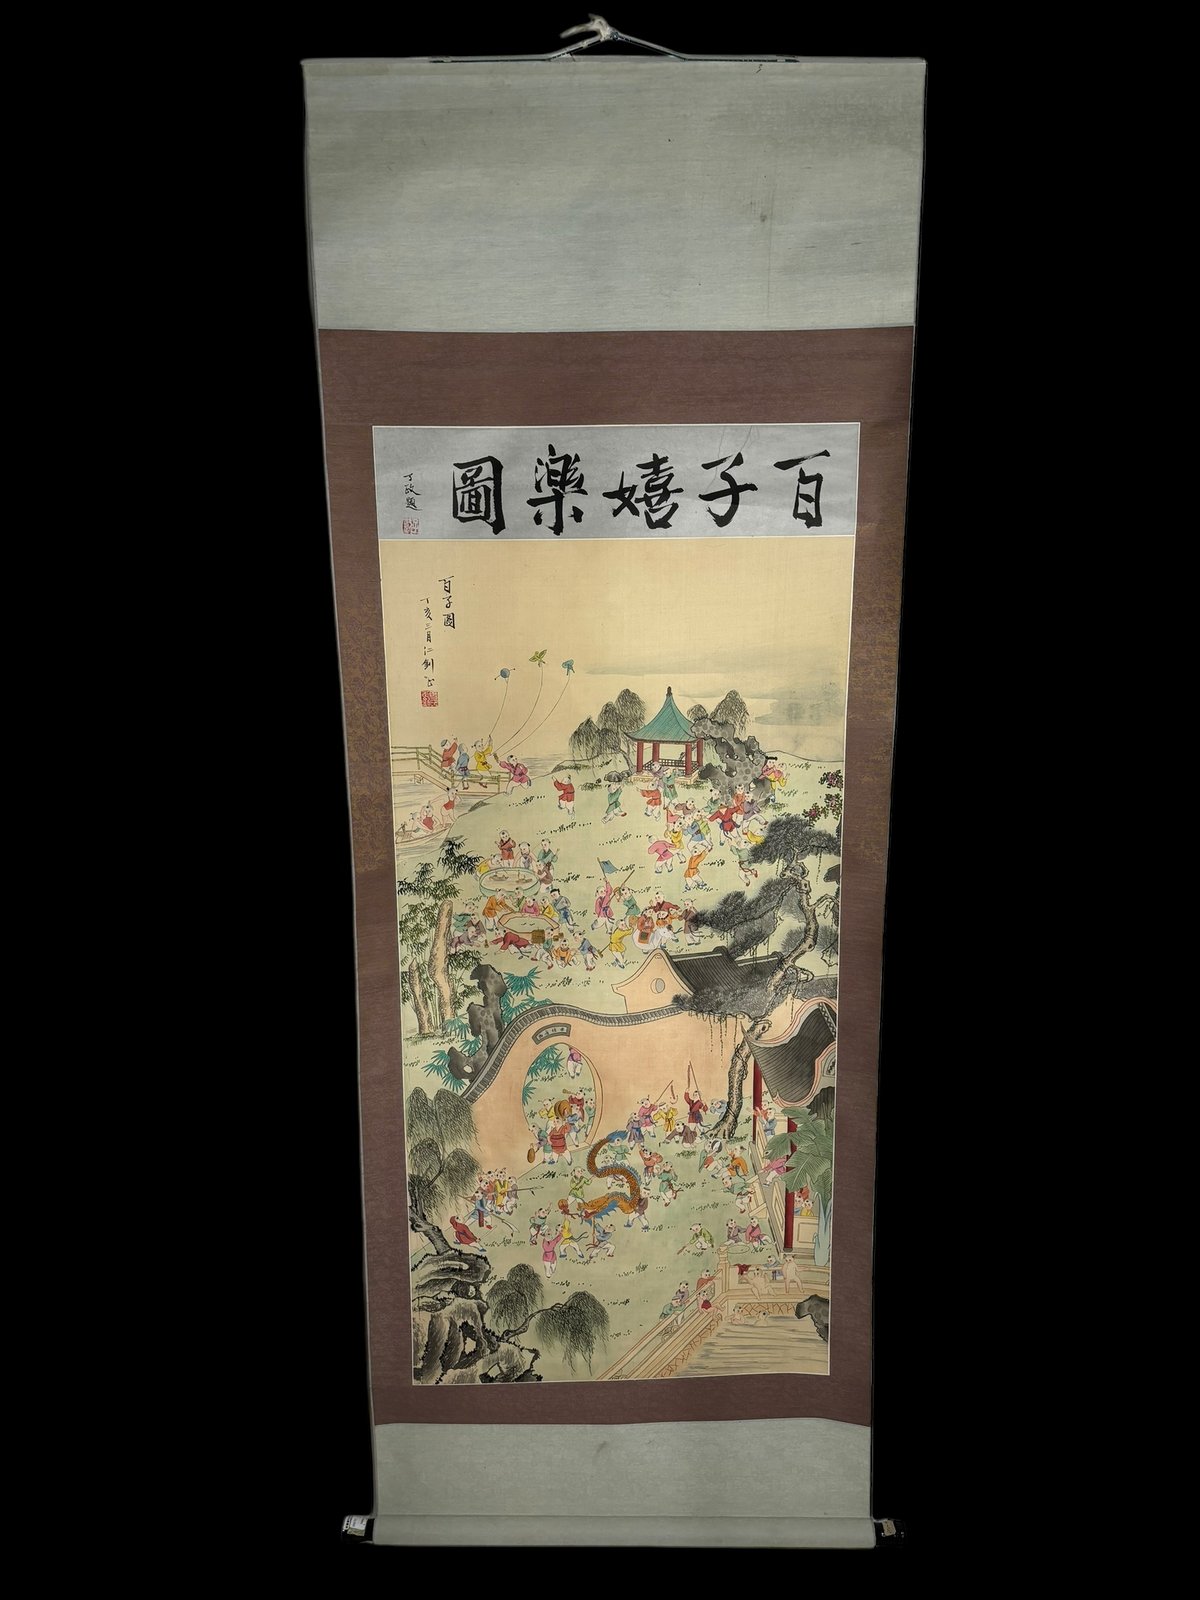 百子嬉樂圖
丁政題
百子圖
丁亥三月仁劍